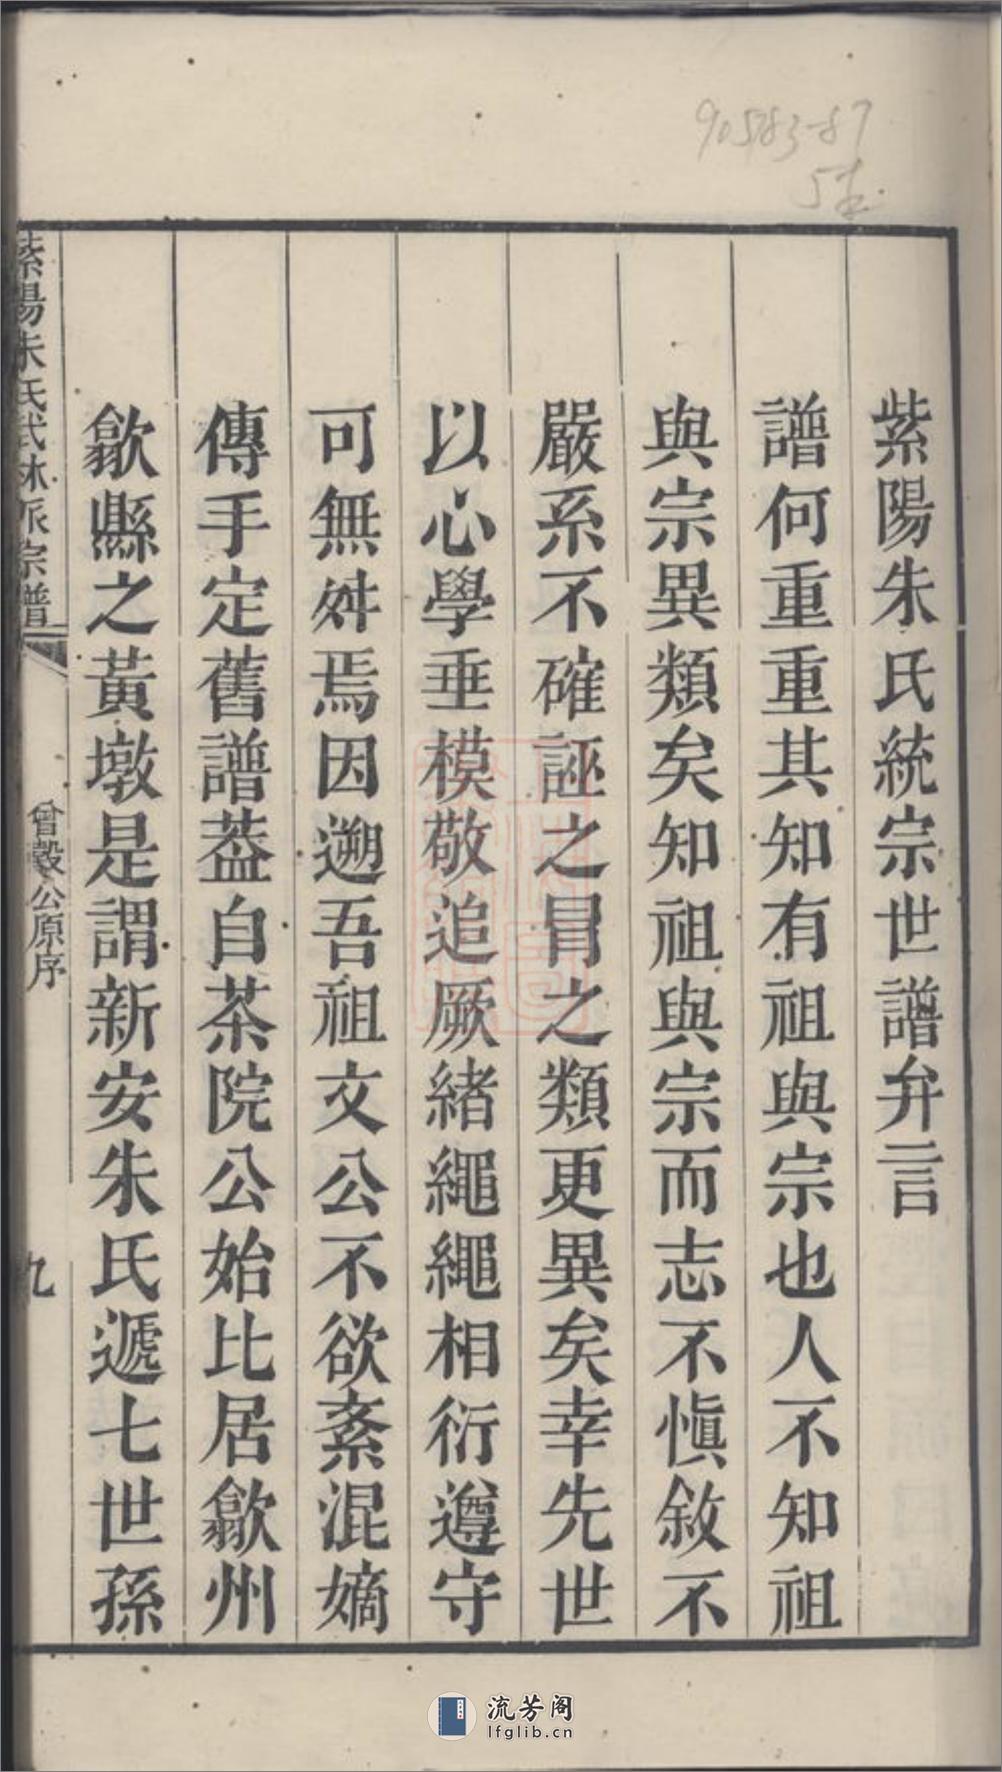 90583-87
紫陽朱氏統宗世譜弁言
譜何重重其知有祖與宗也人不知祖
與宗異類矣知祖與宗而志不愼敘不
嚴系不確誣之冒之類更異矣幸先世
以心學垂模敬追厥緒繩繩相衍遵守
可無舛焉因遡吾祖文公不欲紊混嫡
傳手定舊譜葢自茶院公始比居歙州
歙縣之黃墩是謂新安朱氏遞七世孫
紫陽朱氏武林派宗譜
曾穀公原序
九
流芳阁
lfglib.cn